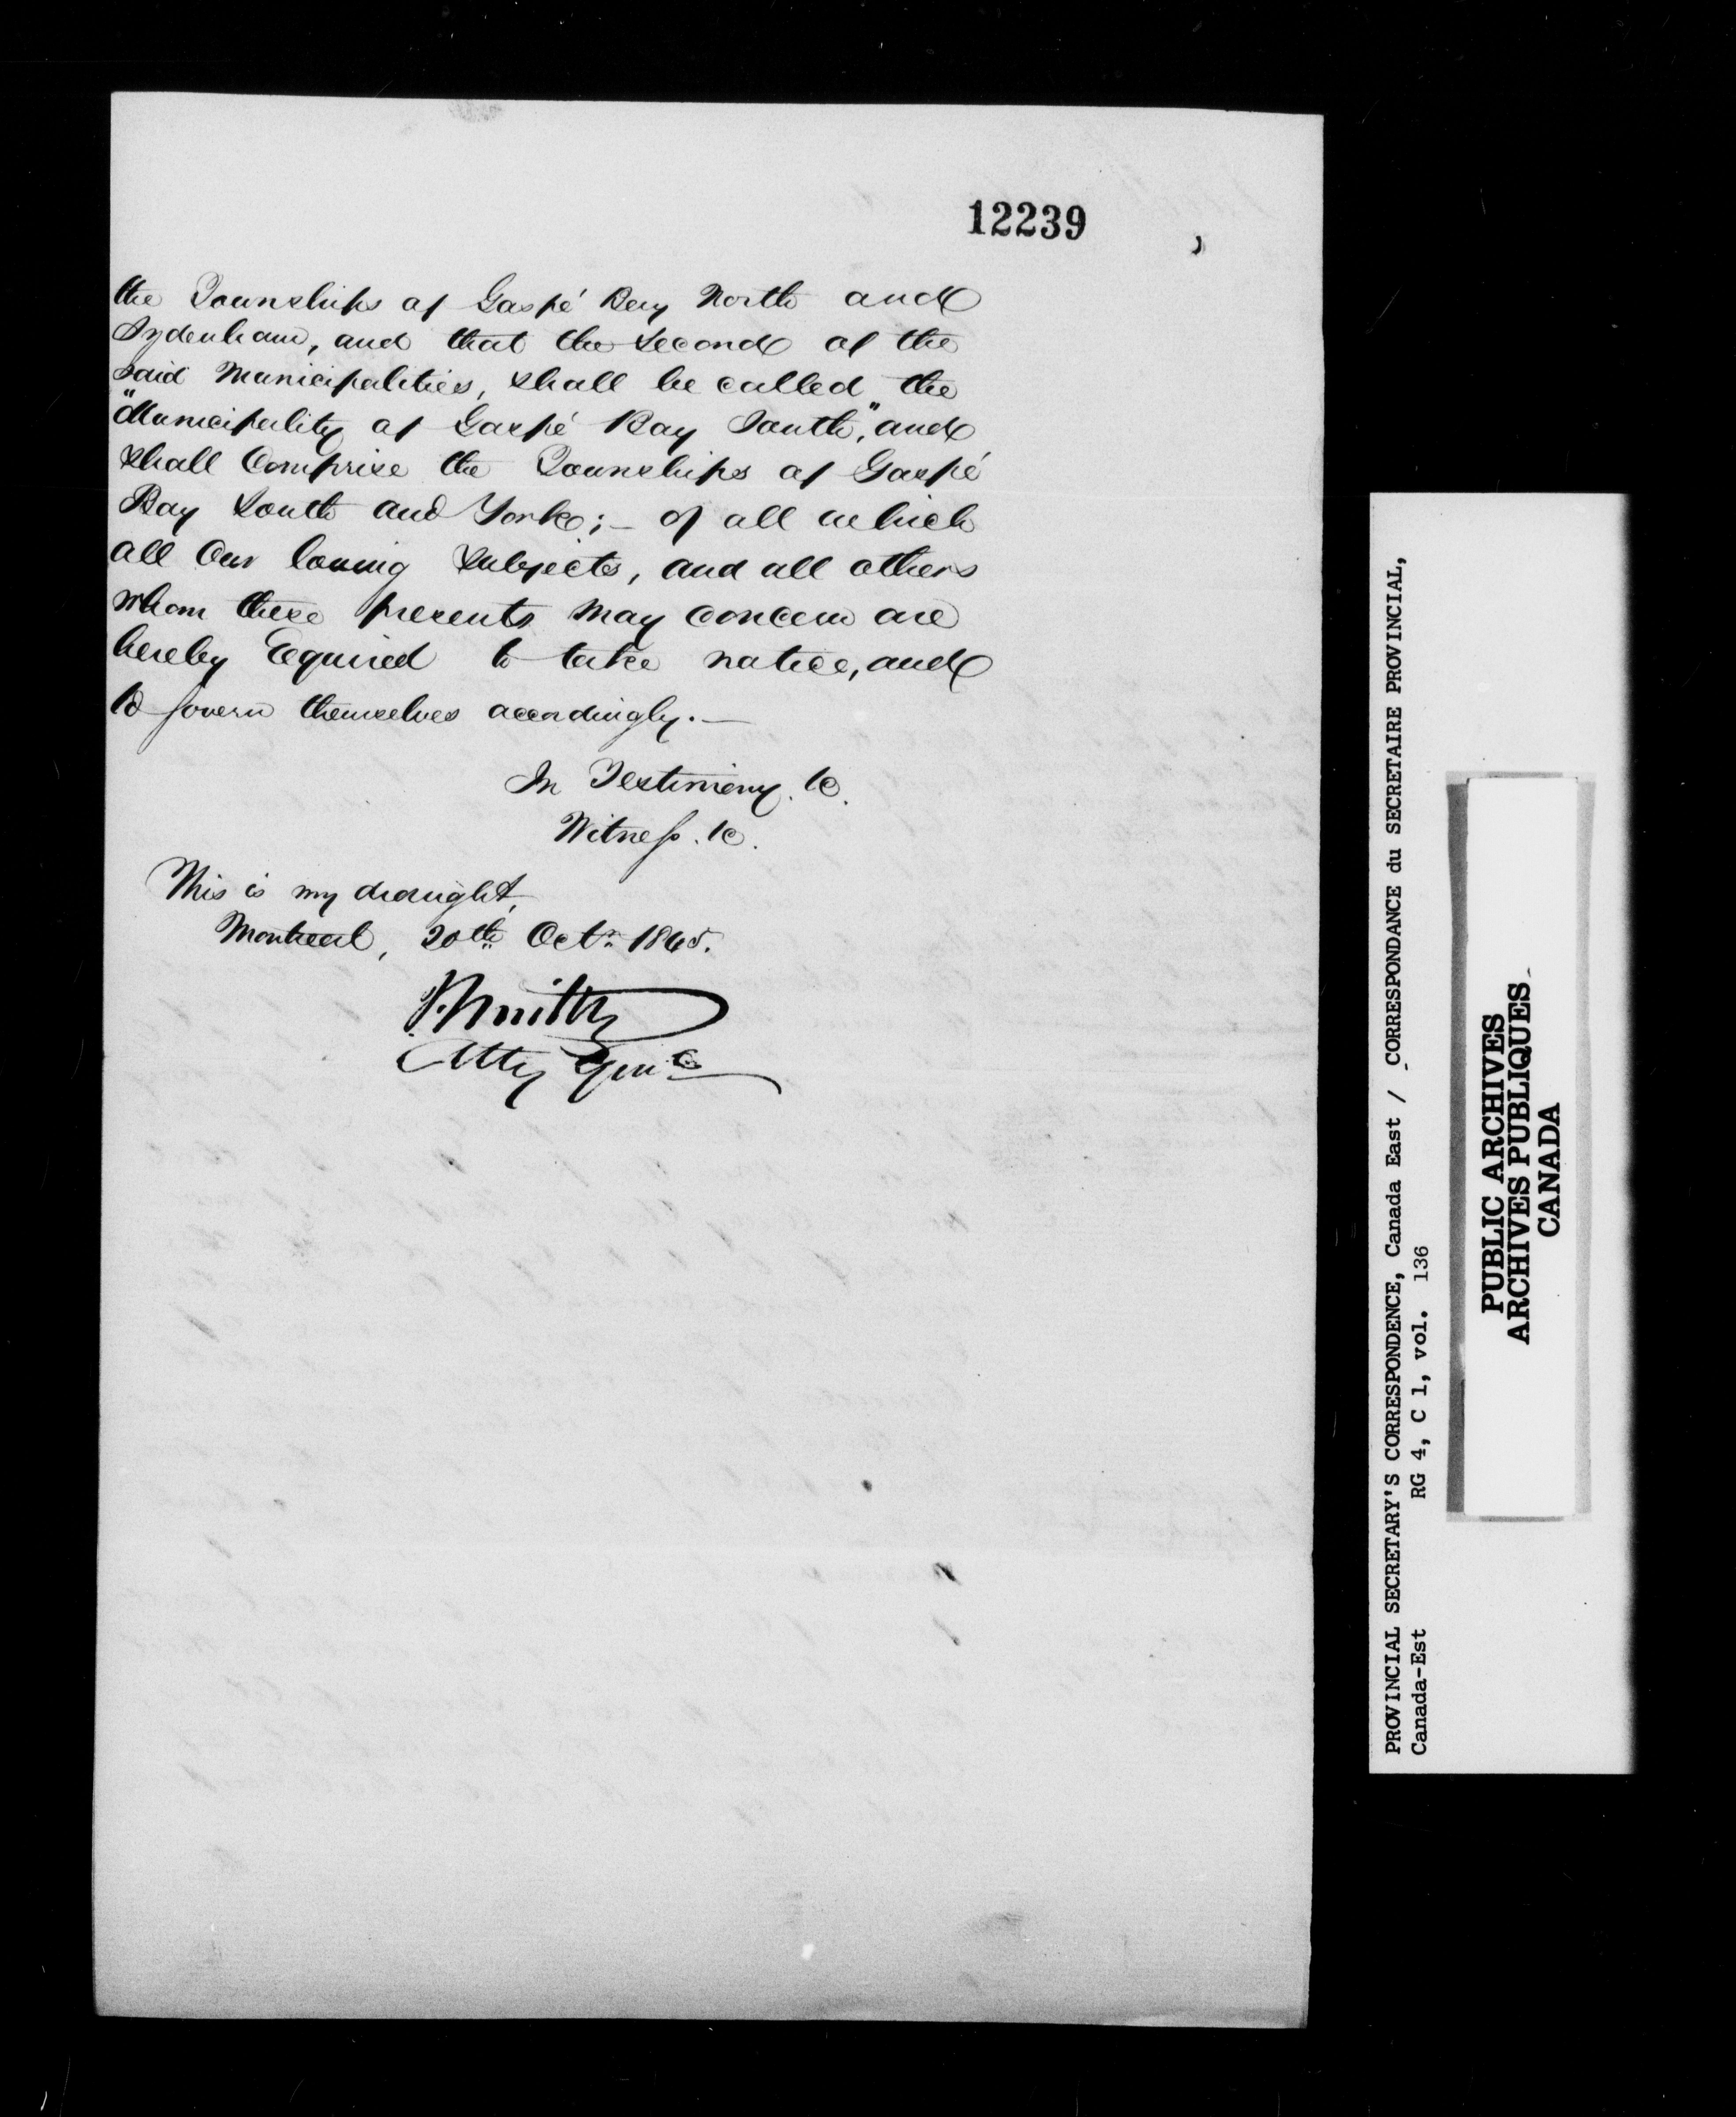 12239
the Townships of Gaspé Bay North and
Sydenham, and that the second of the
said Municipalities, shall be called the
"Municipality of Gaspé Bay South", and
shall Comprise the Townships of Gaspé
Bay South and York; – of all which
all Our loving subjects, and all others
whom these presents may concern are
hereby required to take notice, and
to govern themselves accordingly. –
In Testimony. &c.
Witness. &c.
This is my draught,
Montreal, 20th Octr. 1845.
J. Smith
Atty Genl
PROVINCIAL SECRETARY'S CORRESPONDENCE, Canada East / CORRESPONDANCE du SECRETAIRE PROVINCIAL,
Canada-Est RG 4, C 1, vol. 136
PUBLIC ARCHIVES
ARCHIVES PUBLIQUES
CANADA